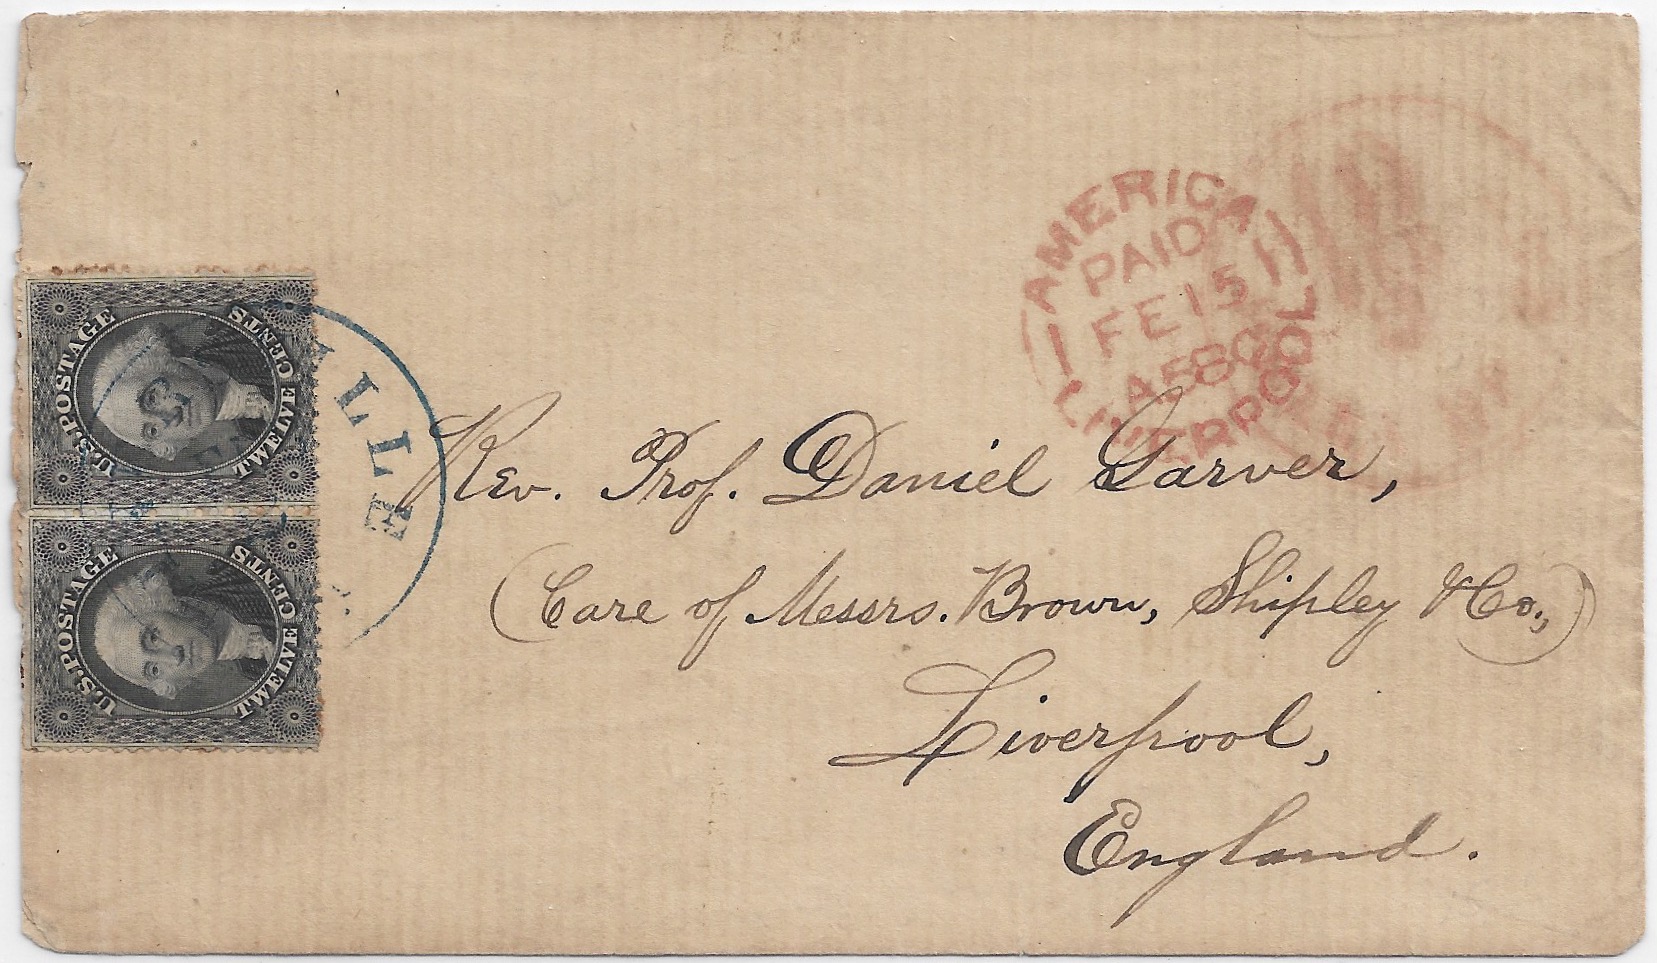 AMERICA
PAID
FE 15
LIVERPOOL
U.S. POSTAGE
TWELVE CENTS
U.S. POSTAGE
TWELVE CENTS
Rev. Prof. Daniel Garver,
(Care of Messrs. Brown, Shipley & Co.,)
Liverpool,
England.